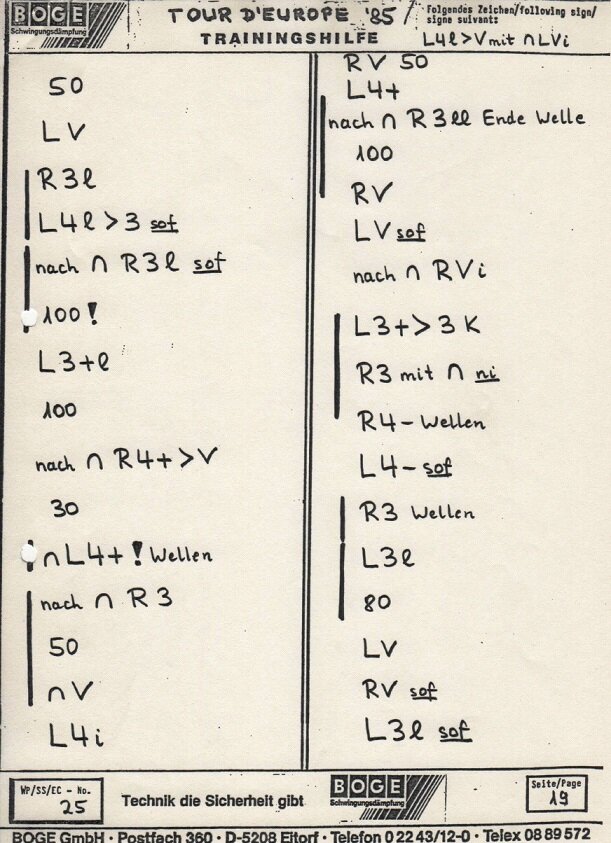 BOGE
Schwingungsdämpfung
TOUR D'EUROPE '85
TRAININGSHILFE
Folgendes Zeichen/following sign/
signe suivant:
L4l>V mit ∩LVi
50
LV
R3l
L4l>3 sof
nach ∩ R3l sof
100!
L3+l
100
nach ∩ R4+>V
30
∩L4+! Wellen
nach ∩ R3
50
∩V
L4i
RV 50
L4+
nach ∩ R3ll Ende Welle
100
RV
LV sof
nach ∩ RVi
L3+>3K
R3 mit ∩ ni
R4- Wellen
L4- sof
R3 Wellen
L3l
80
LV
RV sof
L3l sof
WP/SS/EC - No.
25
Technik die Sicherheit gibt
BOGE
Schwingungsdämpfung
Seite/Page
19
BOGE GmbH · Postfach 360 · D-5208 Eitorf · Telefon 0 22 43/12-0 · Telex 08 89 572